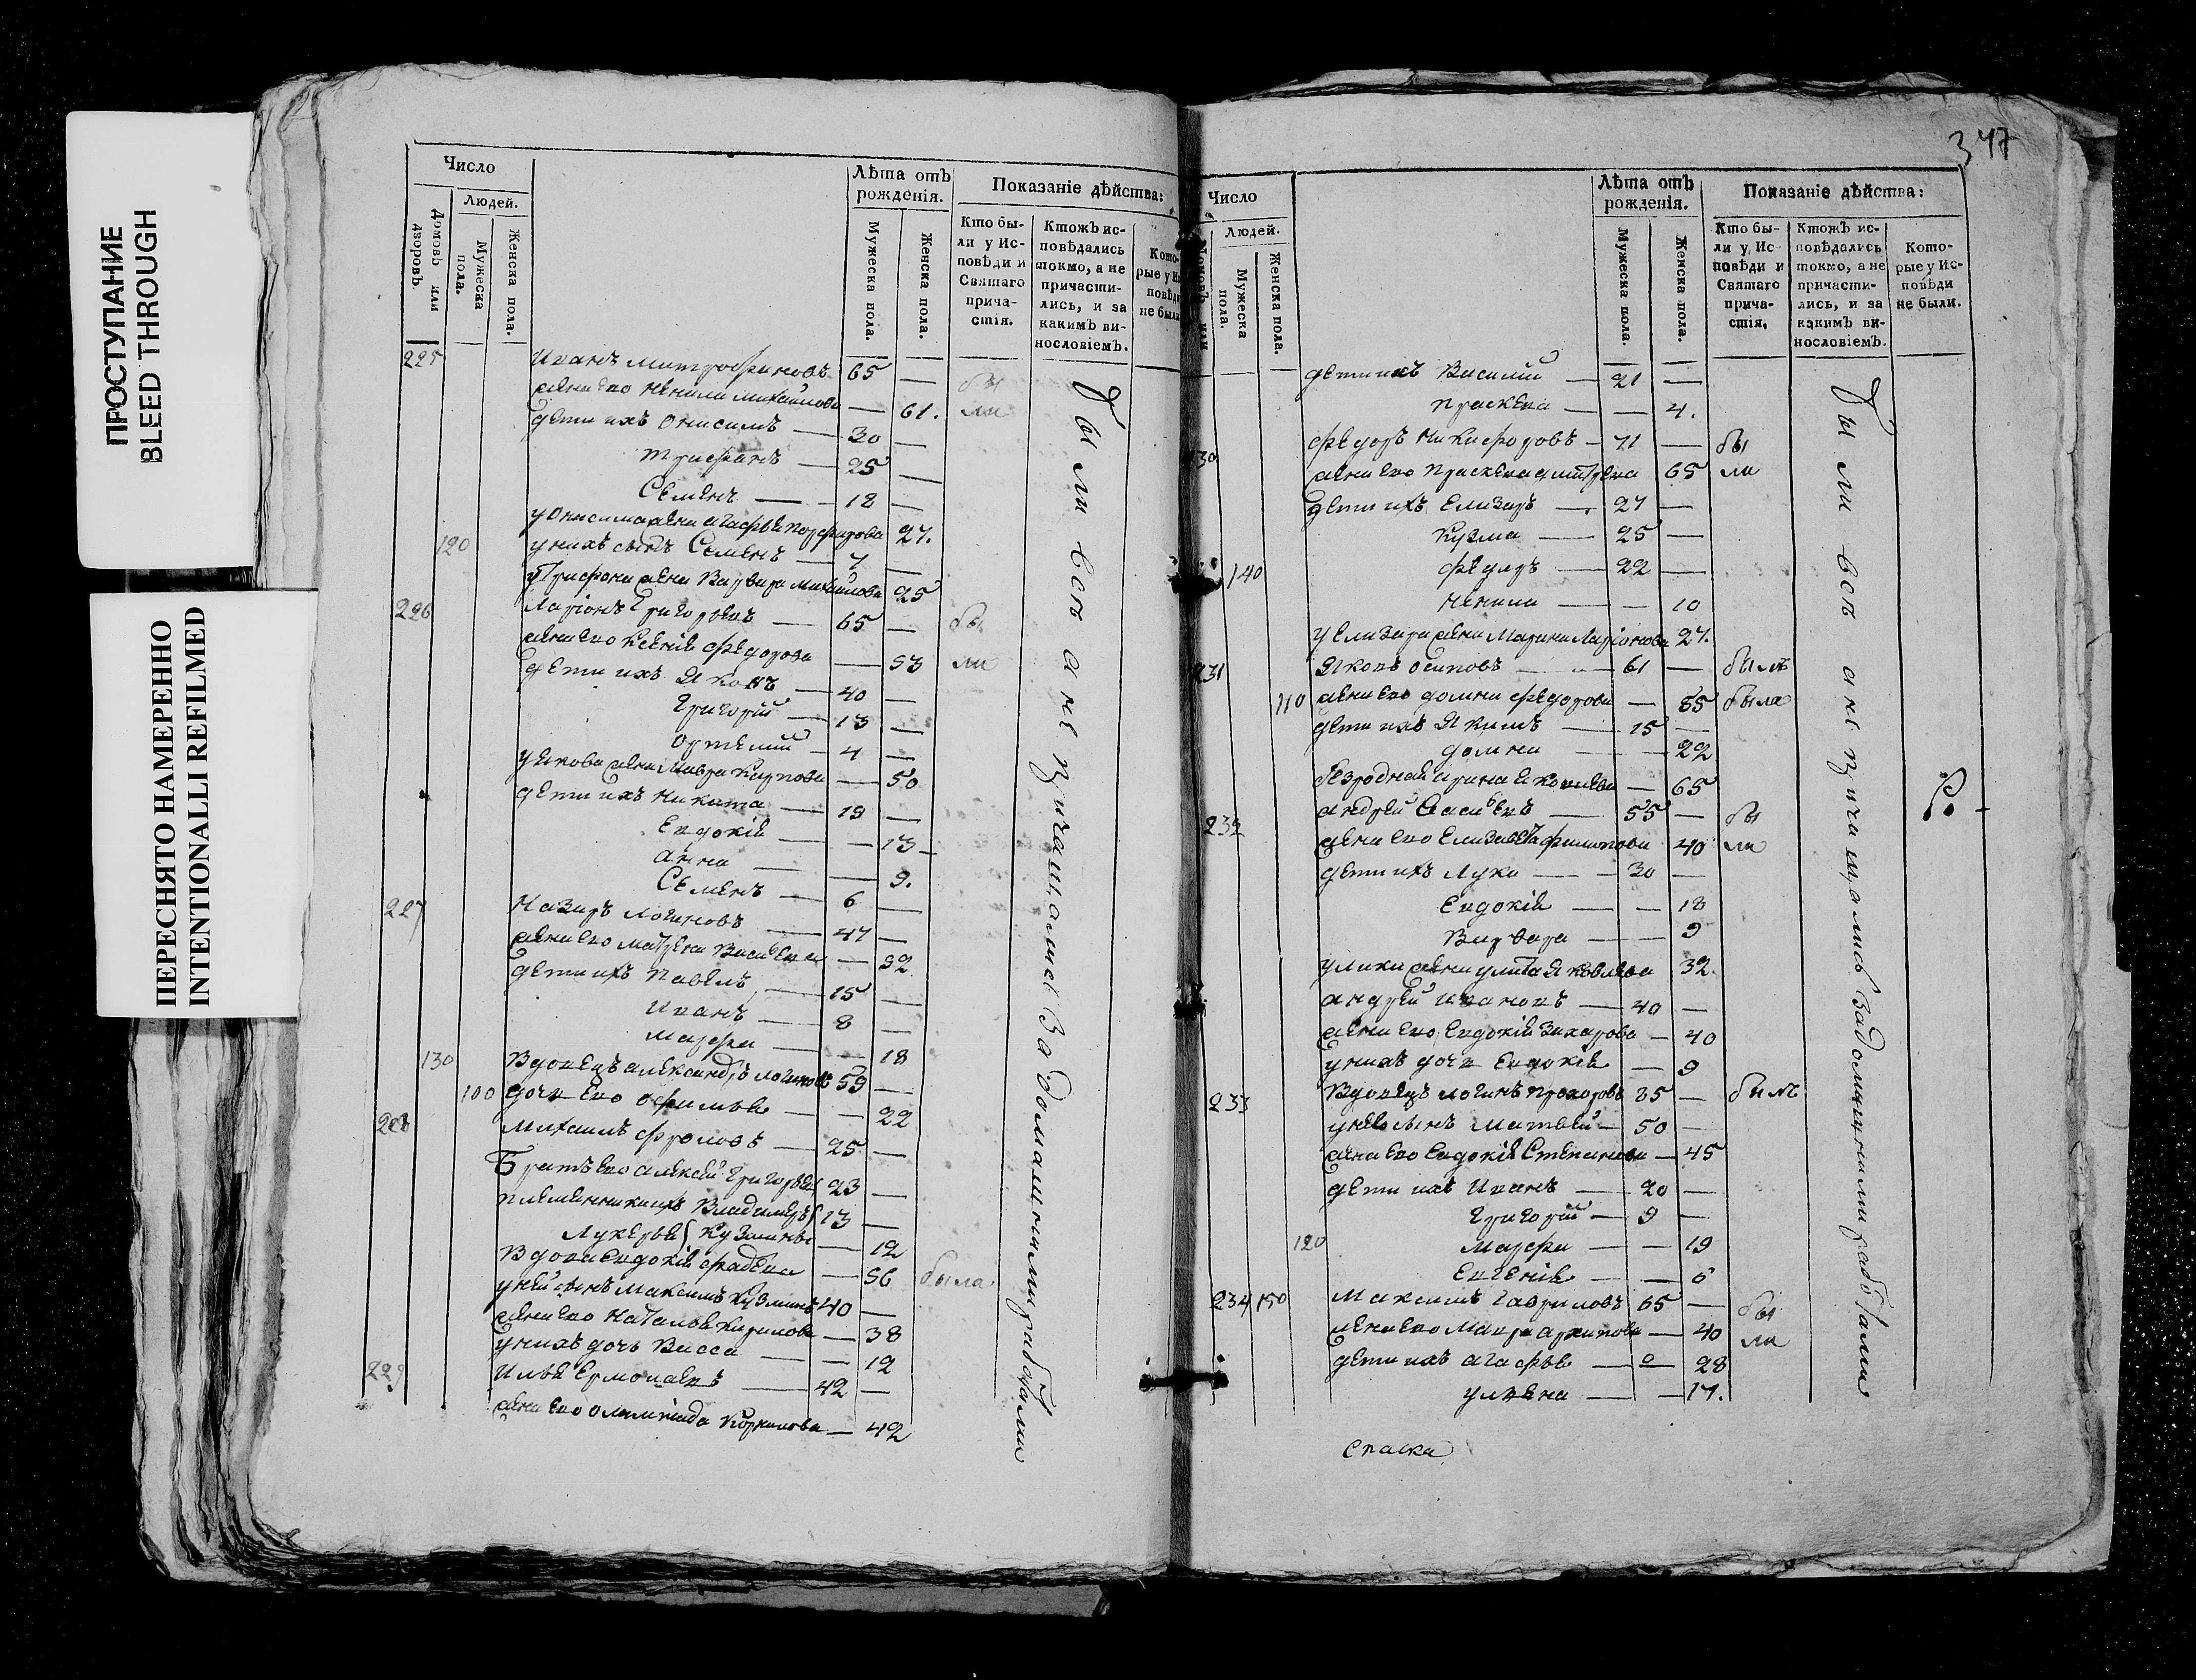 ПРОСТУПАНИЕ
BLEED THROUGH
ПЕРЕСНЯТО НАМЕРЕННО
INTENTIONALLI REFILMED
Число
Людей.
Домовъ или дворовъ.
Мужеска пола.
Женска пола.
Лѣта отъ рожденія.
Мужеска пола.
Женска пола.
Показаніе дѣйства:
Кто бы-
ли у Ис-
повѣди и
Святаго
прича-
стія.
Ктожъ ис-
повѣдались
токмо, а не
причасти-
лись, и за
какимъ ви-
нословіемъ.
Кото-
рые у Ис
повѣди
не были
225 Иванъ Митрофановъ 65 — бы
жена ево Ненила Михайлова — 61. ли
дети ихъ Онисимъ — 30 —
Трифонъ — 25 —
Семенъ — 18 —
у Онисима жена Агафья Порфирова 27.
120 у нихъ сынъ Семенъ — 7 —
у Трифона жена Варвара Михайлова 25
226 Ларіонъ Григорьевъ — 65 — бы
жена ево Ксенія Федорова — 53 ли
дети ихъ Яковъ — 40 —
Григорій — 13 —
Ортемій — 4 —
у Якова жена Мавра Карпова — 50
дети ихъ Никита — 19 —
Евдокія — — 13 —
Анна — — 9.
Семенъ — 6 —
227 Назаръ Логиновъ — 47 —
жена ево Матрена Васильева — 92
дети ихъ Павелъ — 15 —
Иванъ — 8 —
Марфа — — 18
130 Вдовецъ Александръ Логиновъ 59 —
100 дочь ево Офимья — — 22
228 Михаилъ Фроловъ — 25 —
Братъ ево Алексей Григорьевъ 23 —
племянники ихъ Владимеръ 13 —
Лукерья Кузмины — 12
Вдова Евдокія Фадеева — 56 была
у ней сынъ Максимъ Кузминъ 40 —
жена ево Наталья Кирилова — 38
у нихъ дочь Васса — — 12
229 Илья Ермолаевъ — 42 —
жена ево Олимпіада Корнилова — 42
Были все а не причащались За домашними работами
347
Число
Людей.
Мужеска пола.
Женска пола.
Лѣта отъ рожденія.
Мужеска пола.
Женска пола.
Показаніе дѣйства:
Кто бы-
ли у Ис
повѣди и
Святаго
прича-
стія.
Ктожъ ис-
повѣдались
токмо, а не
причасти-
лись, и за
какимъ ви-
нословіемъ.
Кото-
рые у Ис-
повѣди
не были.
дети ихъ Василий — 21 —
Праскева — — 4.
30 Федоръ Никифоровъ — 71 — бы
жена ево Праскева Дмитрева 65 ли
дети ихъ Елизаръ — 27 —
Кузма — 25 —
140 Федоръ — 22 —
Ненила — — 10
у Елизара жена Марина Ларіонова 27.
231 Яковъ Осиповъ — 61 — былъ
110 жена ево Домна Федорова — 55 была
дети ихъ Якимъ — 15 —
Домна — — 22
безродная Ирина Яковлева — 65
232 Андрей Васильевъ — 55 — бы
жена ево Елизавета Филипова 40 ли
дети ихъ Лука — 30 —
Евдокія — — 18
Варвара — — 9
у Луки жена Улита Яковлева 32.
Андрей Ивановъ — 40 —
жена ево Евдокія Захарова — 40
у нихъ дочь Евдокія — 9
233 Вдовецъ Логинъ Прохоровъ 85 — былъ
у нево сынъ Матвей — 50 —
жена ево Евдокія Степанова — 45
дети ихъ Иванъ — 20 —
Григорій — 9 —
120 Марфа — — 19
Евгенія — — 6
234 150 Максимъ Гавриловъ 65 — бы
жена ево Мавра Архипова — 40 ли
дети ихъ Агафья — 0 — 28
Ульяна — — 17.
Были все а не причащались За домашними работами